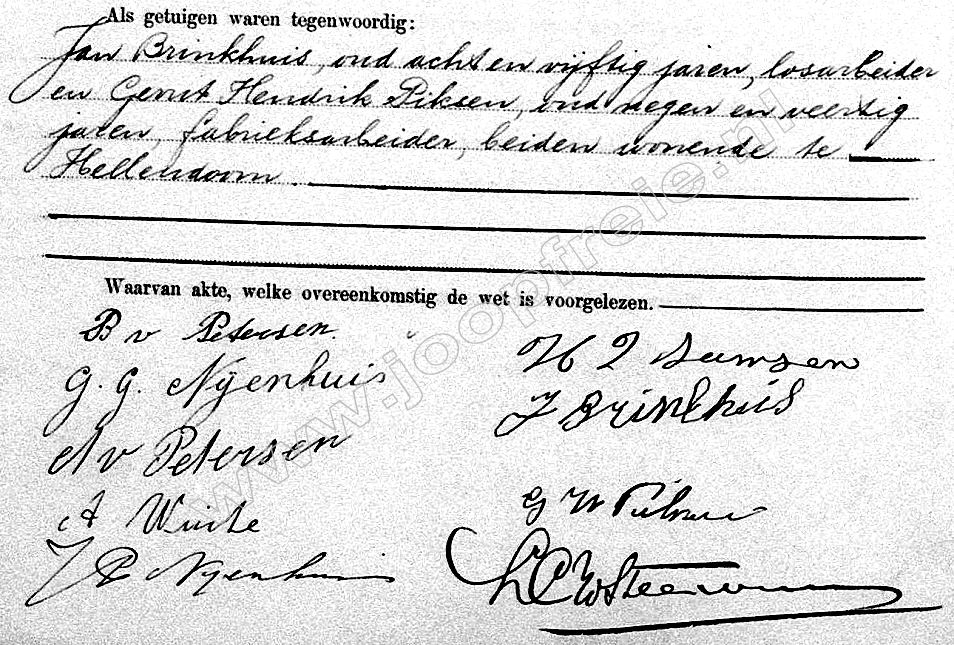 Als getuigen waren tegenwoordig:
Jan Brinkhuis, oud acht en vijftig jaren, losarbeider
en Gerrit Hendrik Piksen, oud negen en veertig
jaren, fabrieksarbeider, beiden wonende te
Hellendoorn.
Waarvan akte, welke overeenkomstig de wet is voorgelezen.
B v Petersen.
G. G. Nijenhuis
A v Petersen
A
J P Nijenhuis
H
J Brinkhuis
G H
www.joopfreie.nl